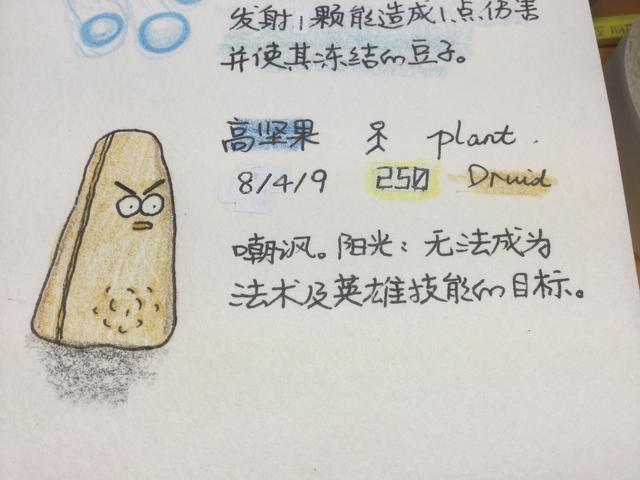 发射1颗能造成1点伤害
并使其冻结的豆子。
高坚果 plant.
8/4/9 250 Druid
嘲讽。阳光：无法成为
法术及英雄技能的目标。